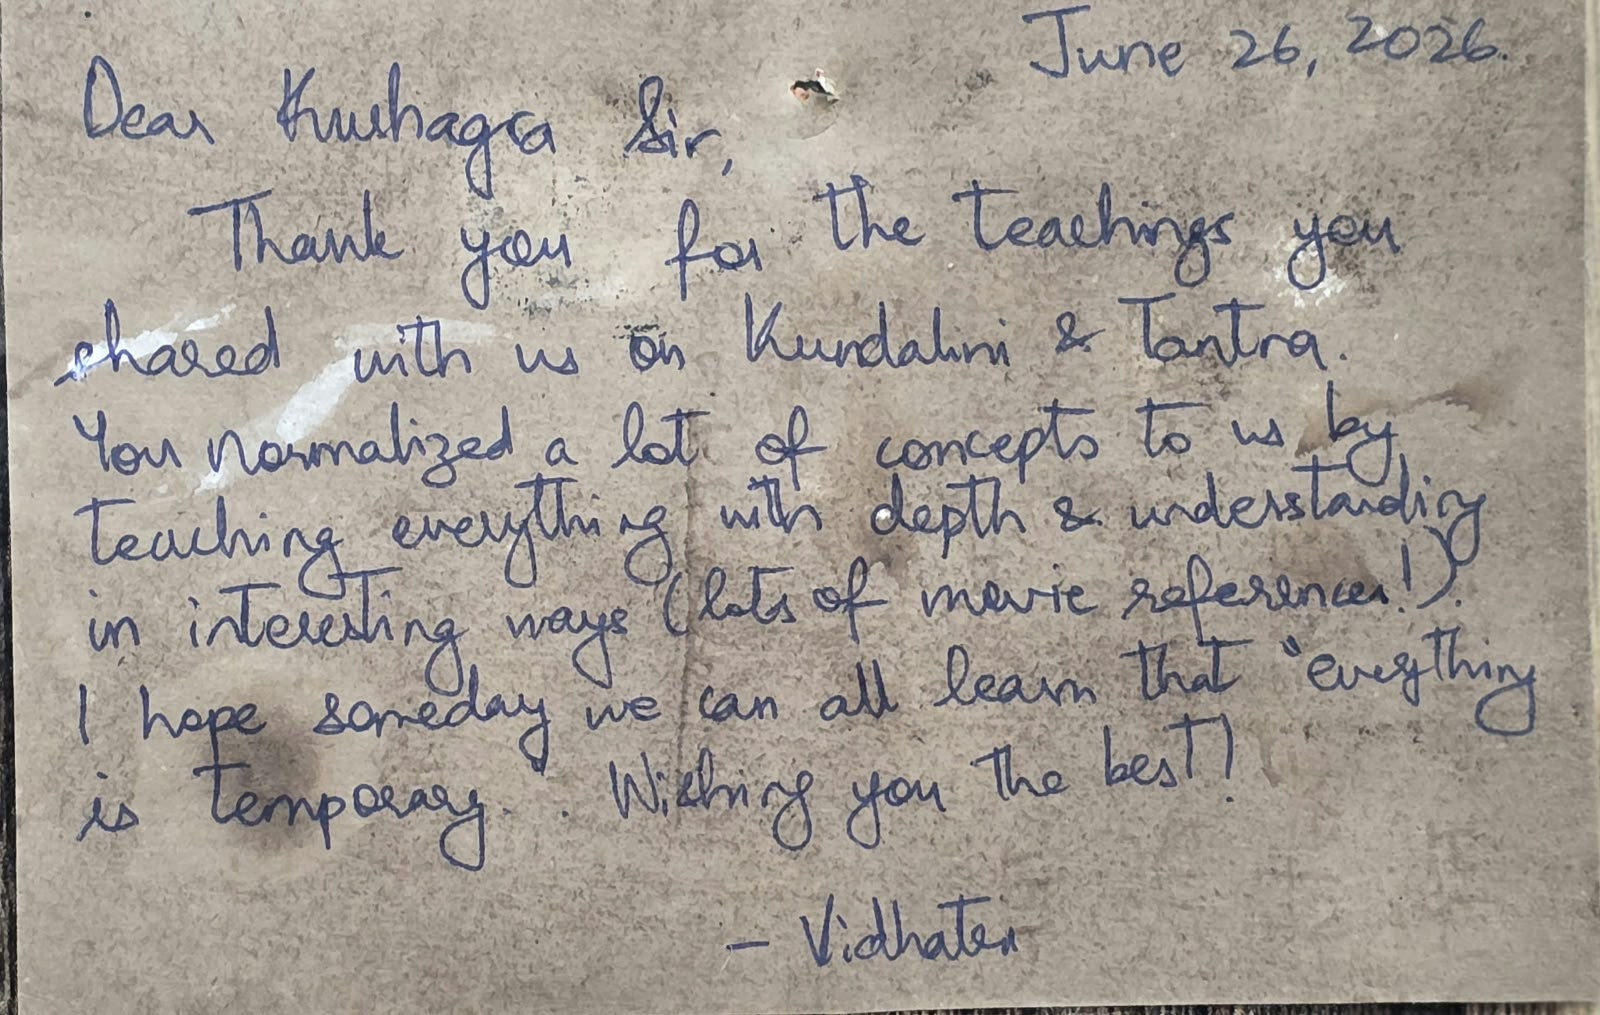 June 26, 2026.
Dear Kushagra Sir,
Thank you for the teachings you
shared with us on Kundalini & Tantra.
You normalized a lot of concepts to us by
teaching everything with depth & understanding
in interesting ways (lots of movie references!).
I hope someday we can all learn that "everything
is temporary". Wishing you the best!
- Vidhater